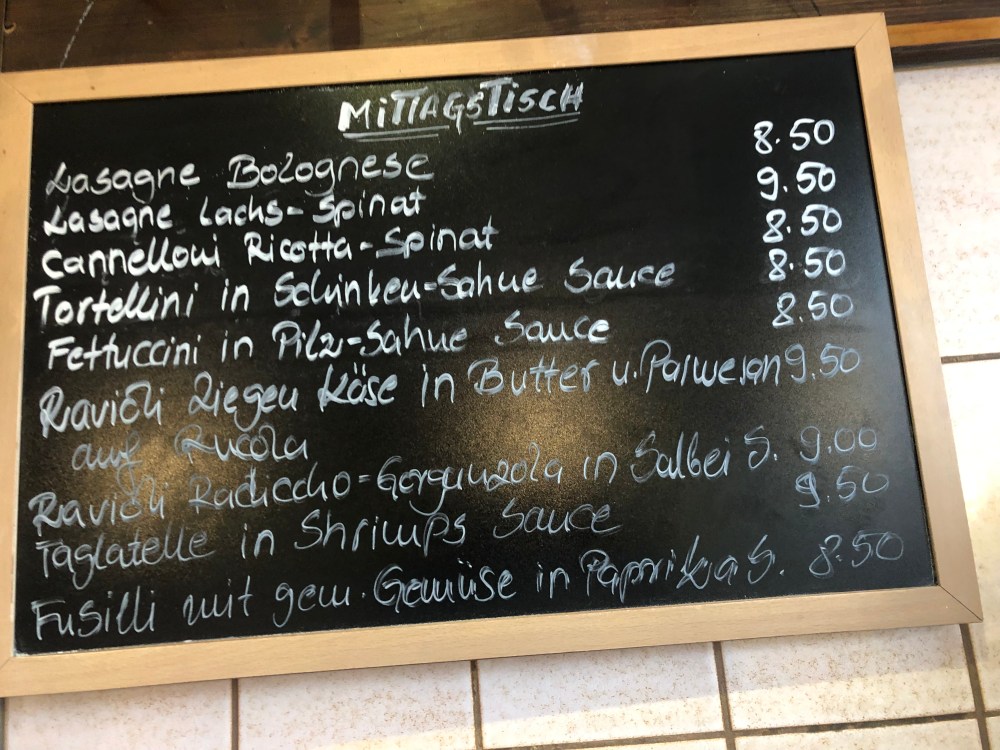 MITTAGSTISCH
Lasagne Bolognese 8.50
Lasagne Lachs-Spinat 9.50
Cannelloni Ricotta-Spinat 8.50
Tortellini in Schinken-Sahne Sauce 8.50
Fettuccini in Pilz-Sahne Sauce 8.50
Ravioli Ziegen Käse in Butter u. Parmesan 9.50
auf Rucola
Ravioli Radiccho-Gorgonzola in Salbei S. 9.00
Taglatelle in Shrimps Sauce 9.50
Fusilli mit gem. Gemüse in Paprika S. 8.50